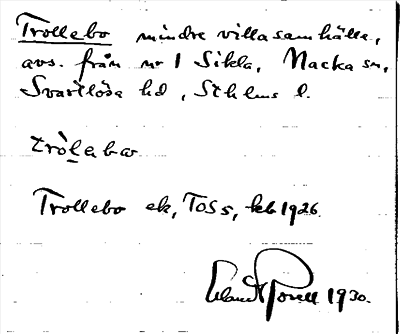 Trollebo mindre villasamhälle,
avs. från nr 1 Sikla, Nacka sn,
Svartlösa hd, Sthlms l.
tròlebω
Trollebo ek, TOSS, kbl 1926.
Erland Rosell 1930.